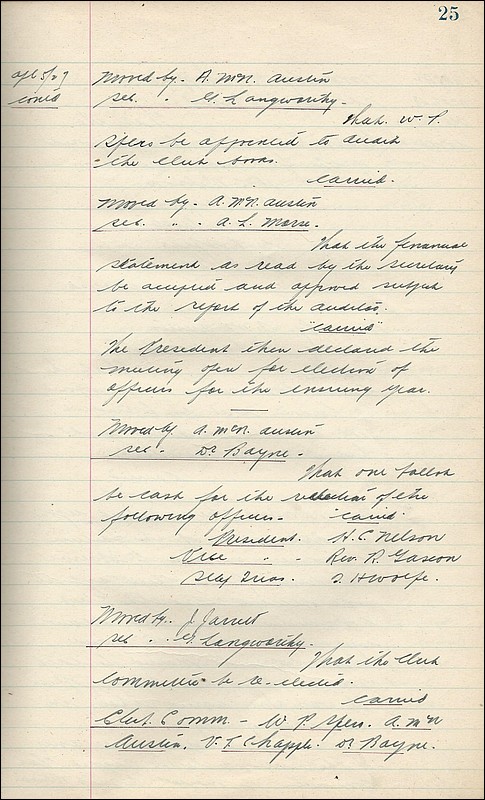 25
apl 5/27 Moved by. A. McN. Austin
contd sec. . G. Langworthy.
that. W. P.
Spers be appointed to audit
the club books.
carried.
Moved by. A. McN. Austin
sec. " . A. L. Morse.
That the financial
statement as read by the secretary
be accepted and approved subject
to the report of the auditors.
"carried"
The President then declared the
meeting open for election of
officers for the ensuing year.
Moved by A. McN. Austin
sec. - Dr Bayne.
That one ballot
be cast for the reelection of the
following officers - "carried."
President. H. C. Nelson
Vice " - Rev. R. Gascon
Secy Treas. J. H Woolfe.
Moved by. J. Jarrett
sec . . G. Langworthy.
That the Club
Committee be re-elected.
carried
Club. Comm - W. P. Spers. A. McN
Austin. V. L. Chapple. Dr Bayne.